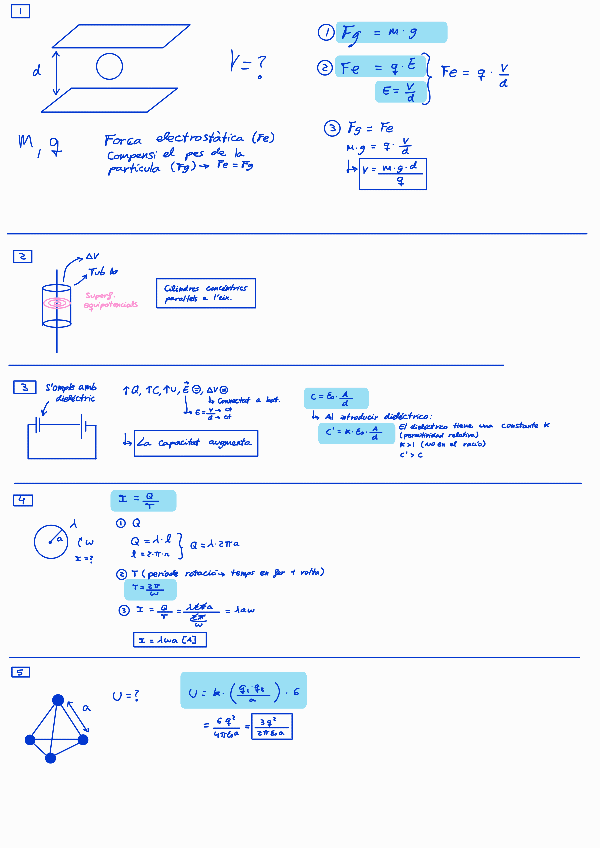 1
d
V = ?
m, q
Força electrostàtica (Fe)
Compensi el pes de la
partícula (Fg) → Fe = Fg
① Fg = m · g
② Fe = q · E
E = V/d
Fe = q · V/d
③ Fg = Fe
m · g = q · V/d
↳ V = m · g · d / q
2
ΔV
Tub
Superf.
equipotencials
Cilindres concèntrics
paral·lels a l'eix.
3
S'omple amb
dielèctric
↑Q, ↑C, ↑U, E⃗ =, ΔV =
↳ Connectat a bat.
↳ E = V/d → ct → ct
↳ La capacitat augmenta
C = ε₀ · A/d
↳ Al introduir dielèctric:
C' = k · ε₀ · A/d
El dielèctric té una constante k
(permitividad relativa)
k > 1 (no en el vacío)
C' > C
4
λ
a
ω
I = ?
I = Q/T
① Q
Q = λ · l
l = 2 · π · a
Q = λ · 2πa
② T (període rotació → temps en fer 1 volta)
T = 2π/ω
③ I = Q/T = λ2πa / (2π/ω) = λaω
I = λωa [A]
5
a
U = ?
U = k · (q₁ · q₂ / a) · 6
= 6q² / 4πε₀a = 3q² / 2πε₀a